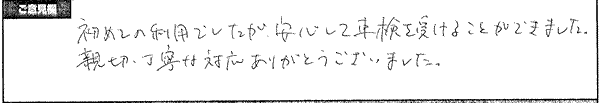 ご意見欄
初めての利用でしたが、安心して車検を受けることができました。
親切、丁寧な対応ありがとうございました。